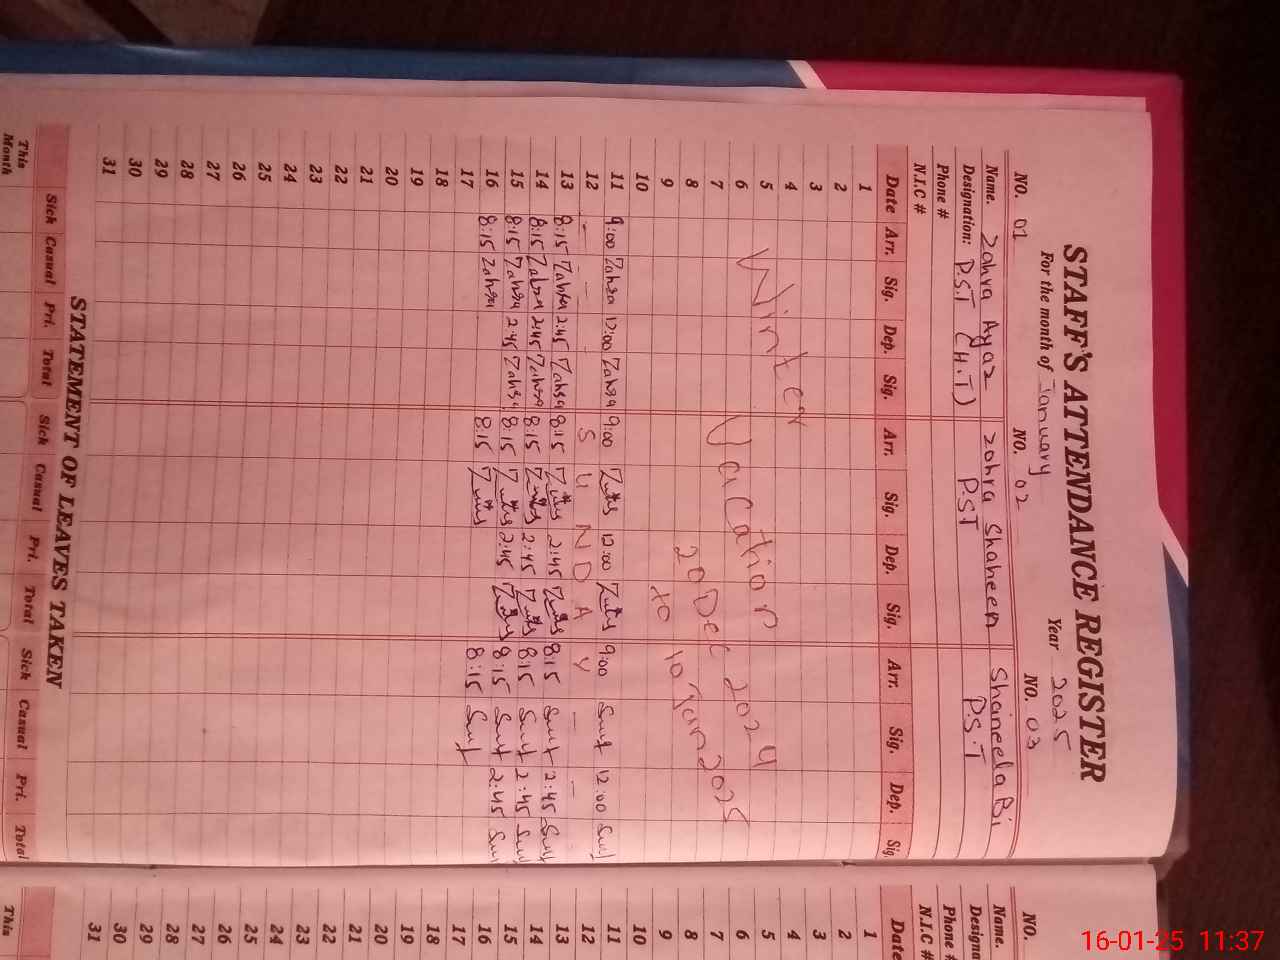 STAFF'S ATTENDANCE REGISTER
For the month of January Year 2025
NO. 01 NO. 02 NO. 03
Name. Zohra Ayaz Zohra Shaheen Shaneela Bi
Designation: P.S.T (H.T) P.S.T P.S.T
Phone #
N.I.C #
Date Arr. Sig. Dep. Sig. Arr. Sig. Dep. Sig. Arr. Sig. Dep. Sig.
1
2
3
4
5
6
7
8
9
10
Winter Vacation
20 Dec 2024
to 10 Jan 2025
11 9:00 Zahra 12:00 Zahra 9:00 12:00 9:00 12:00
12 - - - S U N D A Y - -
13 8:15 Zahra 2:45 Zahra 8:15 2:45 8:15 2:45
14 8:15 Zahra 2:45 Zahra 8:15 2:45 8:15 2:45
15 8:15 Zahra 2:45 Zahra 8:15 2:45 8:15 2:45
16 8:15 Zahra 8:15 8:15
17
18
19
20
21
22
23
24
25
26
27
28
29
30
31
STATEMENT OF LEAVES TAKEN
Sick Casual Pri. Total Sick Casual Pri. Total Sick Casual Pri. Total
This Month
NO.
Name.
Designa
Phone #
N.I.C #
Date
1
2
3
4
5
6
7
8
9
10
11
12
13
14
15
16
17
18
19
20
21
22
23
24
25
26
27
28
29
30
31
This
16-01-25 11:37